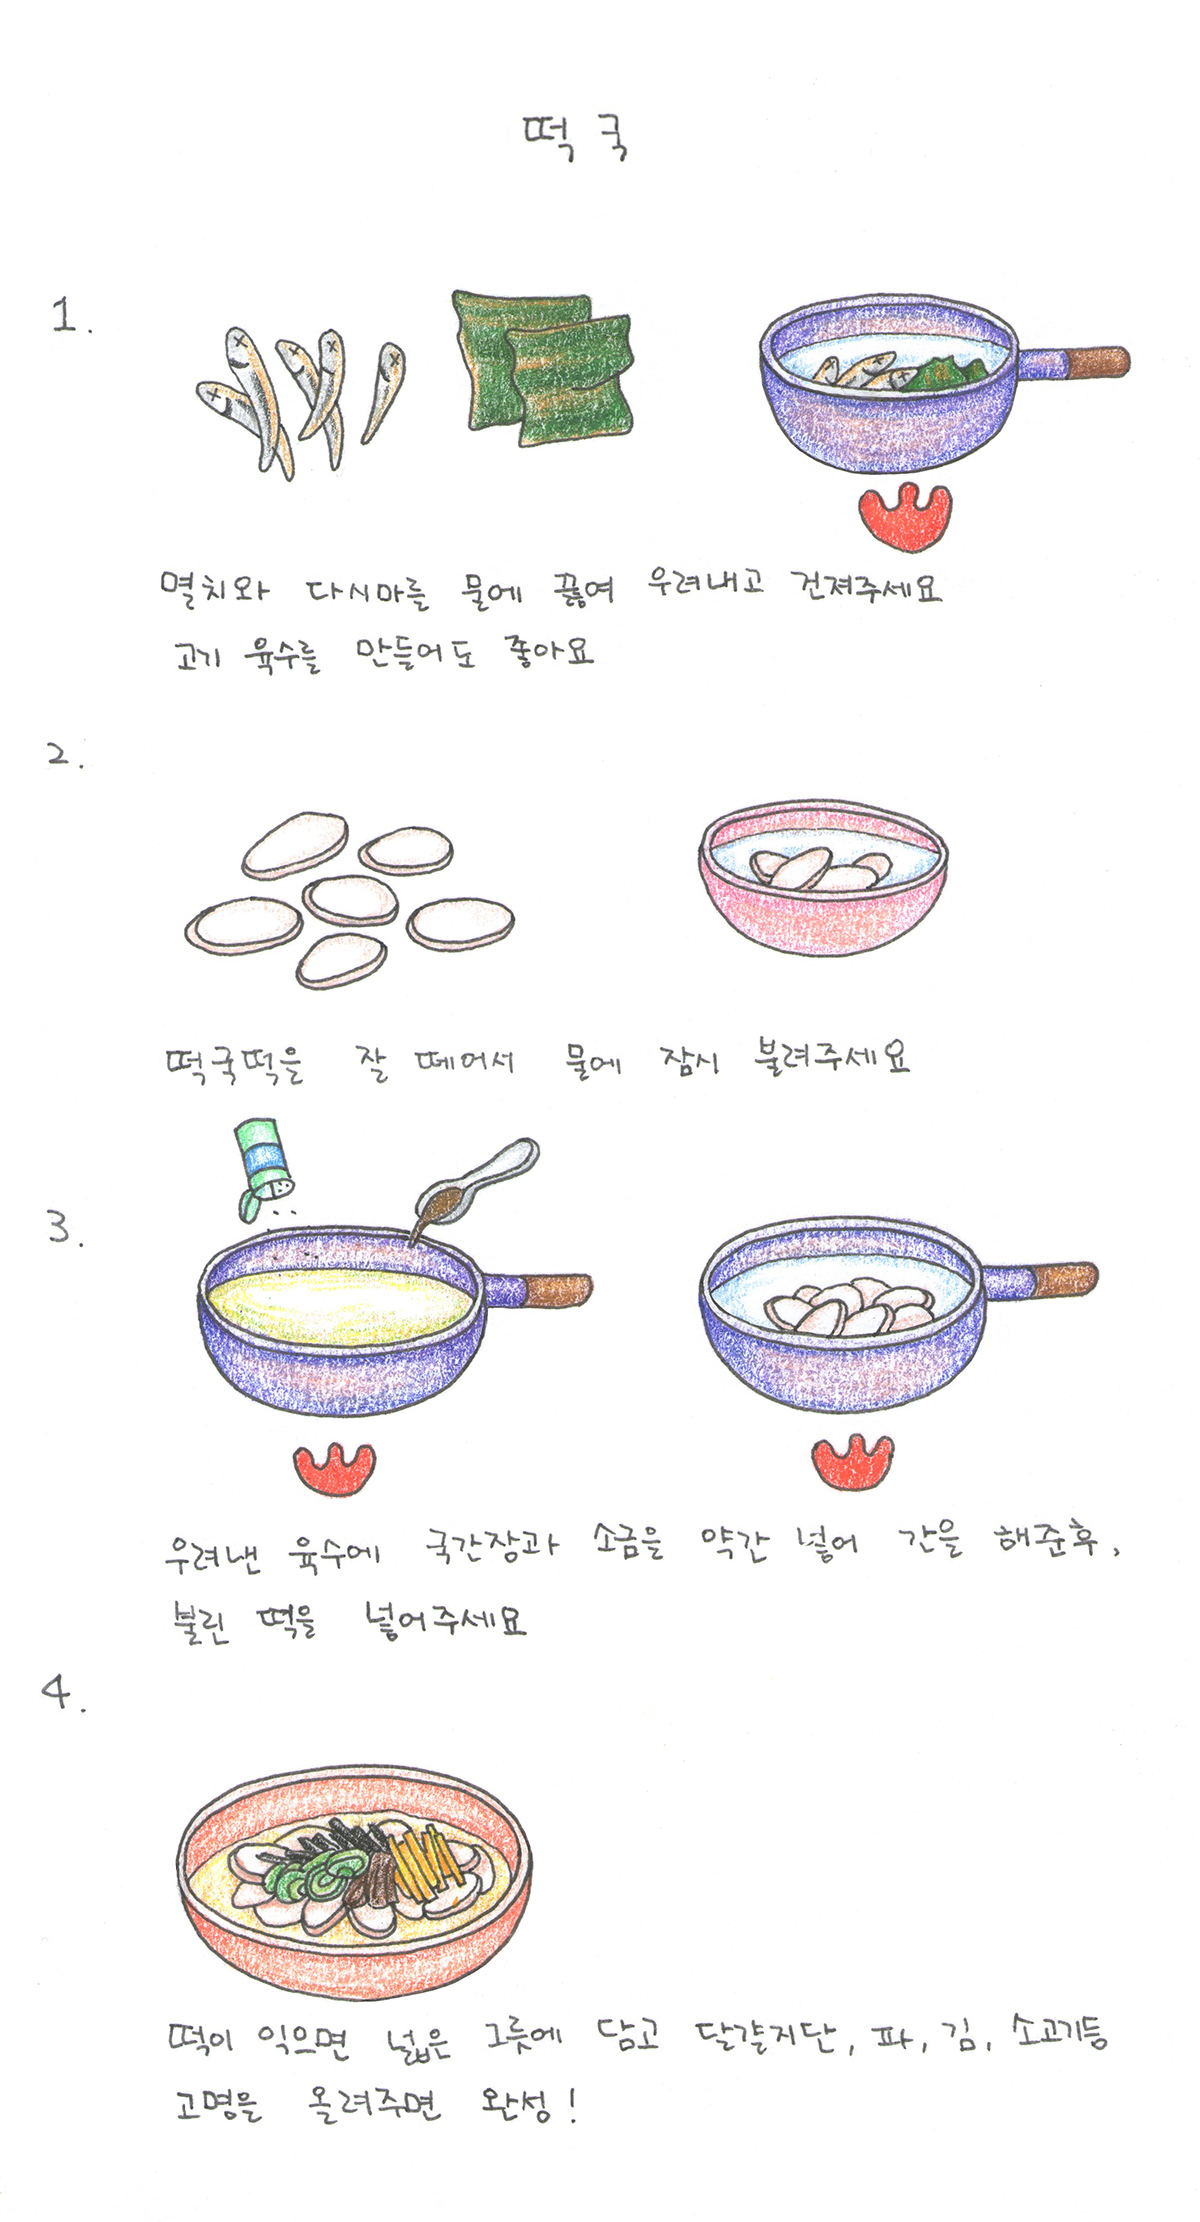 떡국
1.
멸치와 다시마를 물에 끓여 우려내고 건져주세요
고기 육수를 만들어도 좋아요
2.
떡국떡을 잘 떼어서 물에 잠시 불려주세요
3.
우려낸 육수에 국간장과 소금을 약간 넣어 간을 해준후,
불린 떡을 넣어주세요
4.
떡이 익으면 넓은 그릇에 담고 달걀지단, 파, 김, 소고기등
고명을 올려주면 완성!